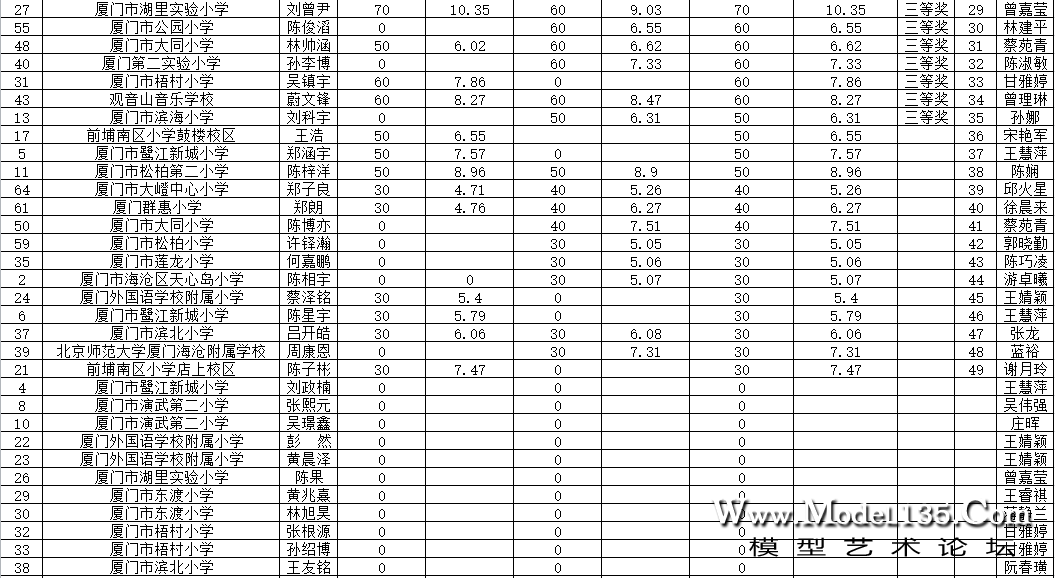 27 厦门市湖里实验小学 刘曾尹 70 10.35 60 9.03 70 10.35 三等奖 29 曾嘉莹
55 厦门市公园小学 陈俊滔 0 60 6.55 60 6.55 三等奖 30 林建平
48 厦门市大同小学 林帅涵 50 6.02 60 6.62 60 6.62 三等奖 31 蔡苑青
40 厦门第二实验小学 孙李博 0 60 7.33 60 7.33 三等奖 32 陈淑敏
31 厦门市梧村小学 吴镇宇 60 7.86 0 60 7.86 三等奖 33 甘雅婷
43 观音山音乐学校 蔚文锋 60 8.27 60 8.47 60 8.27 三等奖 34 曾理琳
13 厦门市滨海小学 刘科宇 0 50 6.31 50 6.31 三等奖 35 孙娜
17 前埔南区小学鼓楼校区 王浩 50 6.55 50 6.55 36 宋艳军
5 厦门市鹭江新城小学 郑涵宇 50 7.57 0 50 7.57 37 王慧萍
11 厦门市松柏第二小学 陈梓洋 50 8.96 50 8.9 50 8.96 38 陈娴
64 厦门市大嶝中心小学 郑子良 30 4.71 40 5.26 40 5.26 39 邱火星
61 厦门群惠小学 郑朗 30 4.76 40 6.27 40 6.27 40 徐晨来
50 厦门市大同小学 陈博亦 0 40 7.51 40 7.51 41 蔡苑青
59 厦门市松柏小学 许铎瀚 0 30 5.05 30 5.05 42 郭晓勤
35 厦门市莲龙小学 何嘉鹏 0 30 5.06 30 5.06 43 陈巧凌
2 厦门市海沧区天心岛小学 陈相宇 0 0 30 5.07 30 5.07 44 游卓曦
24 厦门外国语学校附属小学 蔡泽铭 30 5.4 0 30 5.4 45 王婧颖
6 厦门市鹭江新城小学 陈星宇 30 5.79 0 30 5.79 46 王慧萍
37 厦门市滨北小学 吕开皓 30 6.06 30 6.08 30 6.06 47 张龙
39 北京师范大学厦门海沧附属学校 周康恩 0 30 7.31 30 7.31 48 蓝裕
21 前埔南区小学店上校区 陈子彬 30 7.47 0 30 7.47 49 谢月玲
4 厦门市鹭江新城小学 刘政楠 0 0 0 王慧萍
8 厦门市演武第二小学 张熙元 0 0 0 吴伟强
10 厦门市演武第二小学 吴璟鑫 0 0 0 庄晖
22 厦门外国语学校附属小学 彭 然 0 0 0 王婧颖
23 厦门外国语学校附属小学 黄晨泽 0 0 0 王婧颖
26 厦门市湖里实验小学 陈果 0 0 0 曾嘉莹
29 厦门市东渡小学 黄兆熹 0 0 0 王睿祺
30 厦门市东渡小学 林旭昊 0 0 0
32 厦门市梧村小学 张根源 0 0 0 甘雅婷
33 厦门市梧村小学 孙绍博 0 0 0 甘雅婷
38 厦门市滨北小学 王友铭 0 0 0 阮春璜
Www.Model135.Com
模型艺术论坛